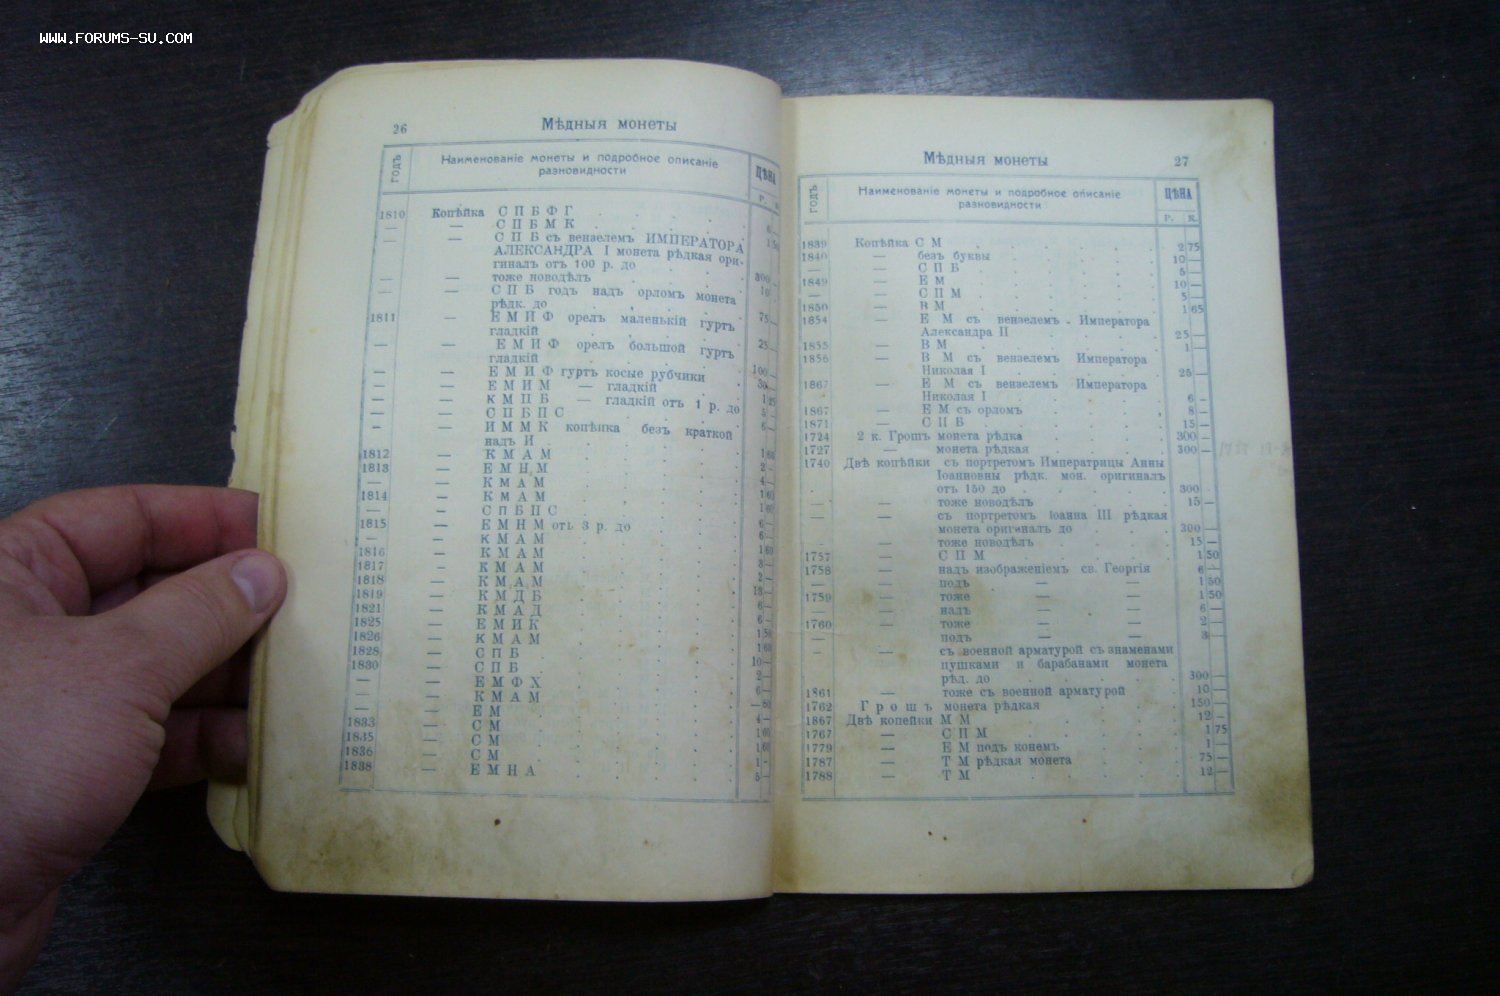 WWW.FORUMS-SU.COM
26
Мѣдныя монеты
ГОДЪ
Наименованіе монеты и подробное описаніе
разновидности
ЦѢНА
Р. К.
1810 Копѣйка С П Б Ф Г
— — С П Б М К 6 —
— — С П Б съ вензелемъ ИМПЕРАТОРА
АЛЕКСАНДРА I монета рѣдкая ори-
гиналъ отъ 100 р. до 300 —
— — тоже новодѣлъ 10
— — С П Б годъ надъ орломъ монета
рѣдк. до 75 —
1811 — Е М И Ф орелъ маленькій гуртъ
гладкій 25 —
— — Е М И Ф орелъ большой гуртъ
гладкій 100 —
— — Е М И Ф гуртъ косые рубчики
— — Е М И М — гладкій
— — К М П Б — гладкій отъ 1 р. до
— — С П Б П С
— — И М М К копѣика безъ краткой
надъ И
1812 — К М А М 1 60
1813 — Е М Н М 2 —
— — К М А М 4 —
1814 — К М А М 1 60
— — С П Б П С 1 60
1815 — Е М Н М отъ 3 р. до 6 —
— — К М А М 6 —
1816 — К М А М 1 60
1817 — К М А М 3 —
1818 — К М А М 2 —
1819 — К М Д Б 13 —
1821 — К М А Д 6 —
1825 — Е М И К 6 —
1826 — К М А М 1 50
1828 — С П Б 1 60
1830 — С П Б 10 —
— — Е М Ф Х 2 —
— — К М А М 6 —
— — Е М — 60
1833 — С М 4 —
1835 — С М 1 60
1836 — С М 1 60
1838 — Е М Н А 5 —
Мѣдныя монеты
27
ГОДЪ
Наименованіе монеты и подробное описаніе
разновидности
ЦѢНА
Р. К.
1839 Копѣйка С М 2 75
1840 — безъ буквы 10 —
— — С П Б 5 —
1849 — Е М 10 —
— — С П М 5 —
1850 — В М 1 65
1854 — Е М съ вензелемъ Императора
Александра II 25 —
1855 — В М 1 —
1856 — В М съ вензелемъ Императора
Николая I 25 —
1867 — Е М съ вензелемъ Императора
Николая I 6 —
1867 — Е М съ орломъ 8 —
1871 — С П Б 15 —
1724 2 к. Грошъ монета рѣдка 300 —
1727 — монета рѣдкая 300 —
1740 Двѣ копѣйки съ портретомъ Императрицы Анны
Іоанновны рѣдк. мон. оригиналъ
отъ 150 до 300
— — тоже новодѣлъ 15 —
— — съ портретомъ Іоанна III рѣдкая
монета оригиналъ до 300 —
— — тоже новодѣлъ 15 —
1757 — С П М 1 50
1758 — надъ изображеніемъ св. Георгія 6 —
— — подъ — — 1 50
1759 — тоже — — 1 50
— — надъ — — 6 —
1760 — тоже — — 2 —
— — подъ — — 3 —
— — съ военной арматурой съ знаменами
пушками и барабанами монета
рѣд. до 300 —
1861 — тоже съ военной арматурой 10 —
1762 Грошъ монета рѣдкая 150 —
1867 Двѣ копейки М М 12 —
1767 — С П М 1 75
1779 — Е М подъ конемъ 1 —
1787 — Т М рѣдкая монета 75 —
1788 — Т М 12 —